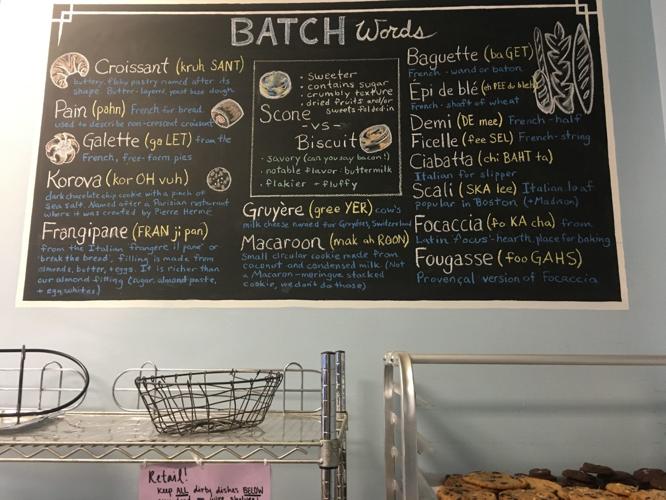 BATCH Words
Croissant (kruh SANT)
buttery, flaky pastry named after its
shape. Butter-layered, yeast base dough
Pain (pahn) French for bread.
used to describe non-crescent croissants
Galette (ga LET) from the
French, free-form pies
Korova (kor OH vuh)
dark chocolate chip cookie with a pinch of
sea salt. Named after a Parisian restaurant
where it was created by Pierre Herme
Frangipane (FRAN ji pan)
from the Italian frangere il pane or
'break the bread', filling is made from
almonds, butter, + eggs. It is richer than
our almond filling (sugar, almond paste,
+ egg whites)
• sweeter
• contains sugar
• crumbly texture
• dried fruits and/or
sweets folded in
Scone
- vs -
Biscuit
• savory (can you say bacon!)
• notable flavor: buttermilk
• flakier + fluffy
Gruyère (gree YER) cow's
milk cheese named for Gruyères, Switzerland
Macaroon (mak ah ROON)
Small circular cookie made from
coconut and condensed milk (Not
a Macaron - meringue stacked
cookie, we don't do those)
Baguette (ba GET)
French - wand or baton
Épi de blé (eh PEE du bleh)
French - shaft of wheat
Demi (DE mee) French - half
Ficelle (fee SEL) French - string
Ciabatta (chi BAHT ta)
Italian for slipper
Scali (SKA lee) Italian loaf
popular in Boston (+ Madison)
Focaccia (fo KA cha) from
Latin 'focus' - hearth, place for baking
Fougasse (foo GAHS)
Provençal version of Focaccia
Retail!
Keep ALL dirty dishes BELOW